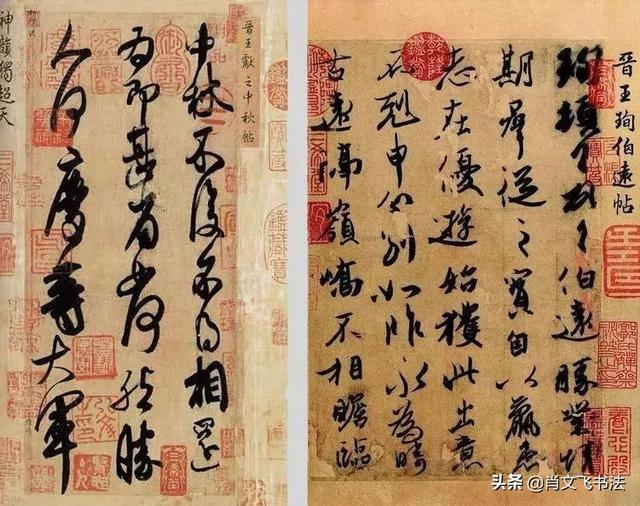 晉王獻之中秋帖
中秋不復不得相還
為即甚省如何然勝
人何慶等大軍
神韻獨超天
晉王珣伯遠帖
珣頓首頓首伯遠勝業情
期群從之寶自以羸患
志在優遊始獲此出意
不剋申分別如昨永為疇
古遠隔嶺嶠不相瞻臨
头条 @肖文飞书法